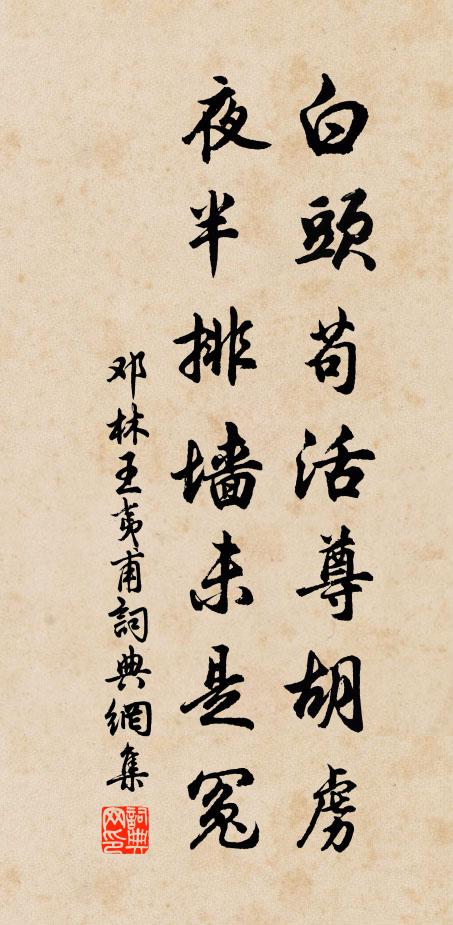 白頭苟活尊胡虜
夜半排墙未是冤
邓林王夷甫詞典網集
詞典网印